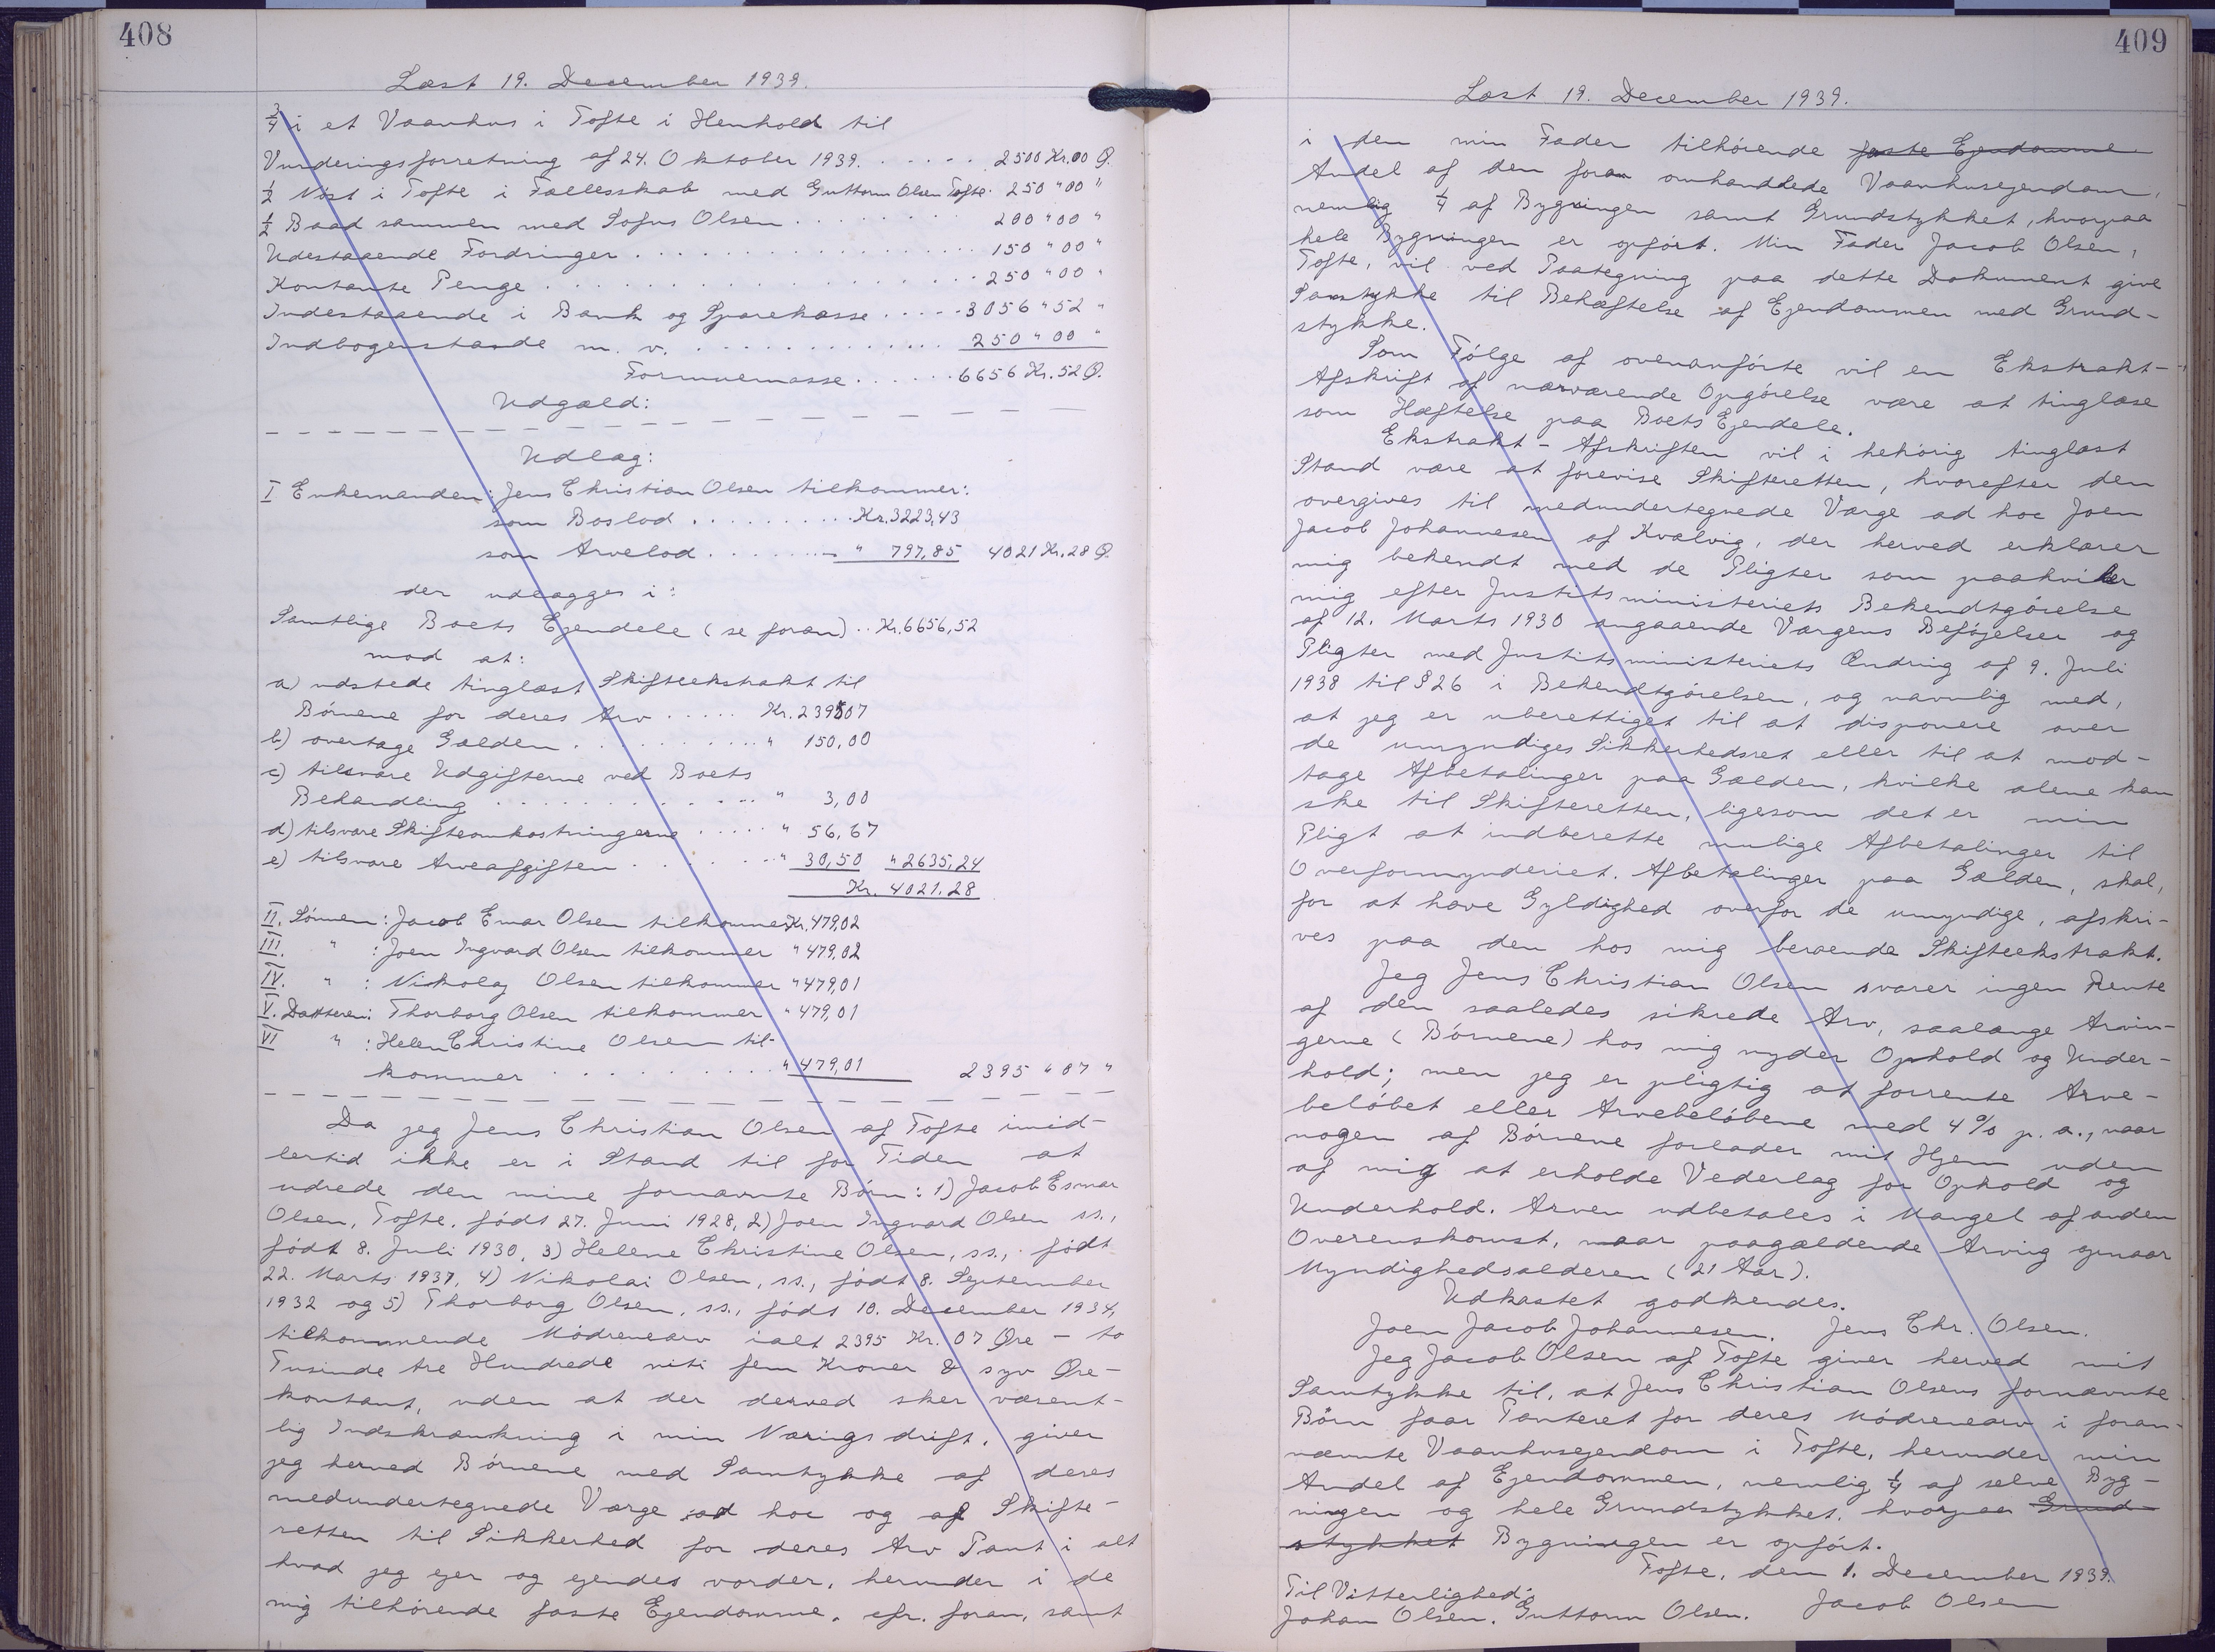 408
Læst 19. December 1939.
3/4 i et Vaanhus i Tofte i Henhold til
Vurderingsforretning af 24. Oktober 1939. . . . . . 2500 Kr. 00 Ø.
1/2 Nøst i Tofte i Fællesskab med Guttorm Olsen Tofte. 250 " 00 "
1/2 Baad sammen med Sofus Olsen . . . . . . . . 200 " 00 "
Udestaaende Fordringer . . . . . . . . . . . . . 150 " 00 "
Kontante Penge . . . . . . . . . . . . . . . . . 250 " 00 "
Indestaaende i Bank og Sparekasse . . . . . 3056 " 52 "
Indbogenstande m. v. . . . . . . . . . . . . . 250 " 00 "
Formuemasse . . . . . . 6656 Kr. 52 Ø.
Udgæld:
Udlæg:
I Enkemanden: Jens Christian Olsen tilkommer:
som Boslod . . . . . . . . . . Kr. 3223,43
som Arvelod . . . . . . . . " 797,85 4021 Kr. 28 Ø.
der udlægges i:
Samtlige Boets Ejendele (se foran) . . Kr. 6656,52
mod at:
a) udstede tinglæst Skifteekstrakt til
Børnene for deres Arv . . . . . Kr. 239507
b) overtage Gælden . . . . . . . . . . . " 150,00
c) tilsvare Udgifterne ved Boets
Behandling . . . . . . . . . . . . . . " 3,00
d) tilsvare Skifteomkostningerne . . . . . " 56,67
e) tilsvare Arveafgiften . . . . . . . . " 30,50 " 2635,24
Kr. 4021.28
II. Sønnen: Jacob Emar Olsen tilkommer Kr. 479,02
III. " : Joen Ingvard Olsen tilkommer " 479,02
IV. " : Nickolaj Olsen tilkommer " 479,01
V. Datteren: Thorborg Olsen tilkommer " 479,01
VI " : Helen Christine Olsen til-
kommer . . . . . . . . . . . " 479,01 2395 " 07 "
Da jeg Jens Christian Olsen af Tofte imid-
lertid ikke er i Stand til for Tiden at
udrede den mine fornævnte Børn: 1) Jacob Esmar
Olsen, Tofte, født 27. Juni 1928, 2) Joen Ingvard Olsen ss.,
født 8. Juli 1930, 3) Helene Christine Olsen, ss., født
22. Marts 1937, 4) Nikolai Olsen, ss., født 8. September
1932 og 5) Thorborg Olsen, ss., født 10. December 1934,
tilkommende Mødrenearv ialt 2395 Kr. 07 Øre - to
Tusinde tre Hundrede niti fem Kroner & syv Øre-
kontant, uden at der derved sker væsent-
lig Indskrænkning i min Næringsdrift, giver
jeg herved Børnene med Samtykke af deres
medundertegnede Værge ad hoc og af Skifte-
retten til Sikkerhed for deres Arv Pant i alt
hvad jeg ejer og ejendes vorder, herunder i de
mig tilhørende faste Ejendomme, cfr. foran, samt
409
Læst 19. December 1939.
i den min Fader tilhørende faste Ejendomme
Andel af den foran omhandlede Vaanhusejendom,
nemlig 1/4 af Bygningen samt Grundstykket, hvorpaa
hele Bygningen er opført. Min Fader Jacob Olsen,
Tofte, vil ved Paategning paa dette Dokument give
Samtykke til Behæftelse af Ejendommen med Grund-
stykke.
Som Følge af ovenanførte vil en Ekstrakt-
Afskrift af nærværende Opgørelse være at tinglæse
som Hæftelse paa Boets Ejendele.
Ekstrakt-Afskriften vil i behørig tinglæst
Stand være at forevise Skifteretten, hvorefter den
overgives til medundertegnede Værge ad hoc Joen
Jacob Johannesen af Kvalvig, der herved erklærer
mig bekendt med de Pligter som paahviler
mig efter Justitsministeriets Bekendtgørelse
af 12. Marts 1930 angaaende Værgens Beføjelser og
Pligter med Justitsministeriets Ændring af 9. Juli
1938 til § 26 i Bekendtgørelsen, og navnlig med,
at jeg er uberettiget til at disponere over
de umyndiges Sikkerhedsret eller til at mod-
tage Afbetalinger paa Gælden, hvilke alene kan
ske til Skifteretten, ligesom det er min
Pligt at indberette mulige Afbetalinger til
Overformynderiet. Afbetalinger paa Gælden, skal,
for at have Gyldighed overfor de umyndige, afskri-
ves paa den hos mig beroende Skifteekstrakt.
Jeg Jens Christian Olsen svarer ingen Rente
af den saaledes sikrede Arv, saalænge Arvin-
gerne (Børnene) hos mig nyder Ophold og Under-
hold; men jeg er pligtig at forrente Arve-
beløbet eller Arvebeløbene med 4 % p. a., naar
nogen af Børnene forlader mit Hjem uden
af mig at erholde Vederlag for Ophold og
Underhold. Arven udbetales i Mangel af anden
Overenskomst, naar paagældende Arving opnaar
Myndighedsalderen (21 Aar).
Udkastet godkendes.
Joen Jacob Johannesen. Jens Chr. Olsen.
Jeg Jacob Olsen af Tofte giver herved mit
Samtykke til, at Jens Christian Olsens fornævnte
Børn faar Panteret for deres Mødrenearv i foran-
nævnte Vaanhusejendom i Tofte, herunder min
Andel af Ejendommen, nemlig 1/4 af selve Byg-
ningen og hele Grundstykket, hvorpaa Grund-
stykket Bygningen er opført.
Tofte, den 1. December 1939.
Til Vitterlighed: Jacob Olsen
Johan Olsen. Guttorm Olsen.